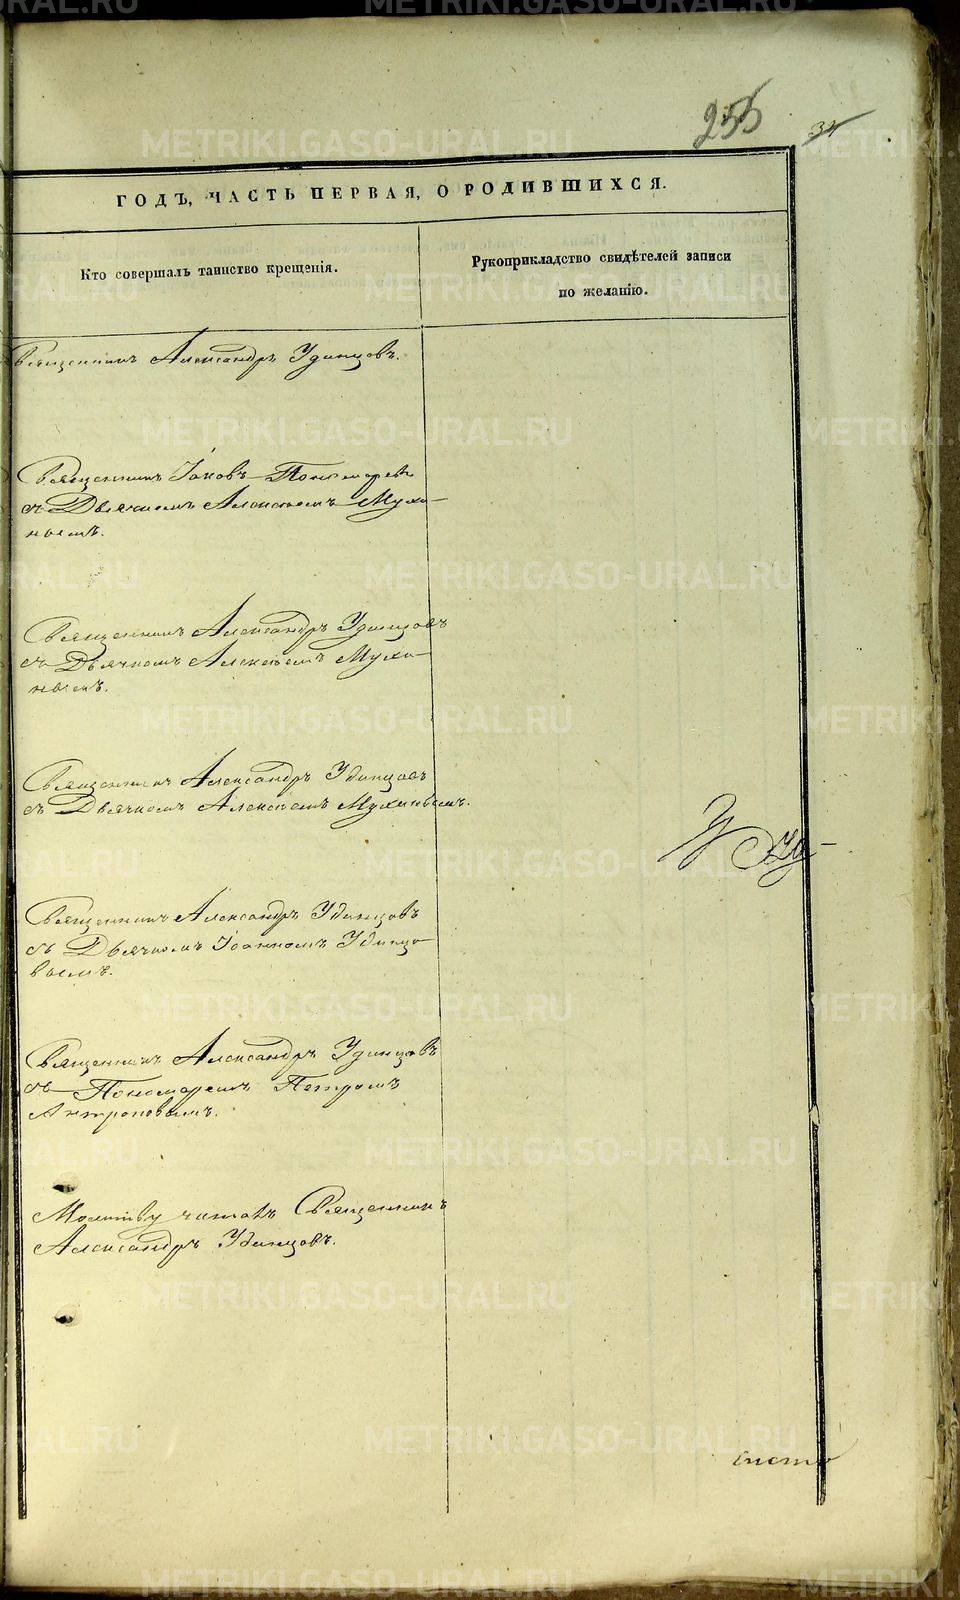 255
34
ГОДЪ, ЧАСТЬ ПЕРВАЯ, О РОДИВШИХСЯ.
Кто совершалъ таинство крещенія.
Рукоприкладство свидѣтелей записи
по желанію.
Священникъ Александръ Удинцовъ.
Священникъ Іаковъ Пономаревъ
съ Дьячкомъ Алексѣемъ Мухи-
нымъ.
Священникъ Александръ Удинцовъ
съ Дьячкомъ Алексѣемъ Мухи-
нымъ.
Священникъ Александръ Удинцовъ
съ Дьячкомъ Алексѣемъ Мухинымъ.
Священникъ Александръ Удинцовъ
съ Дьячкомъ Іоанномъ Удинцо-
вымъ.
Священникъ Александръ Удинцовъ
съ Пономаремъ Петромъ
Антроповымъ.
Молитву читалъ Священникъ
Александръ Удинцовъ.
METRIKI.GASO-URAL.RU